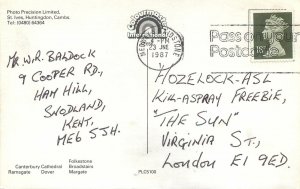 Photo Precision Limited,
St. Ives, Huntingdon, Cambs.
Tel: (0480) 64364
MR. W.R. BALDOCK
9 COOPER RD,
HAM HILL,
SNODLAND,
KENT,
ME6 5JH.
MAIDSTONE
- PM
23 JNE
1987
Pass on your
Postcode
18P
HOZELOCK-ASL
KILL-ASPRAY FREEBIE,
"THE SUN"
VIRGINIA ST.,
LONDON E1 9ED.
Canterbury Cathedral
Folkestone
Ramsgate
Dover
Broadstairs
Margate
PLC5100